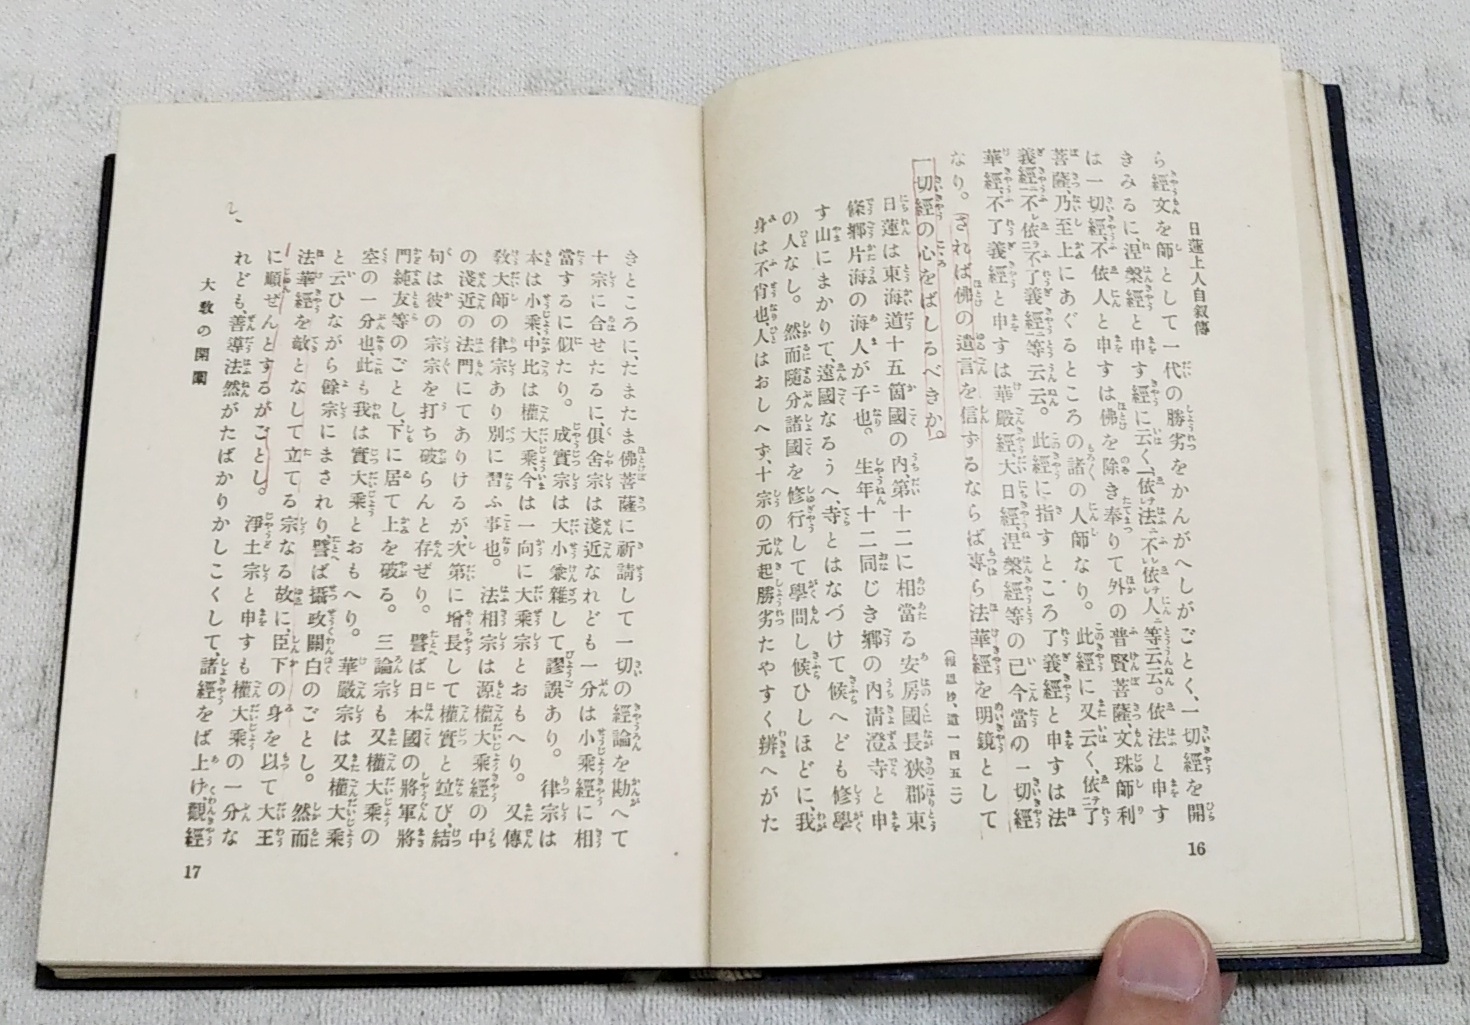 日蓮上人自叙傳
ら經文を師として一代の勝劣をかんがへしがごとく、一切經を開
きみるに涅槃經と申す經に云く、「依レ法不レ依レ人」等云云。依法と申す
は一切經、不依人と申すは佛を除き奉りて外の普賢菩薩、文珠師利
菩薩、乃至上にあぐるところの諸の人師なり。此經に又云く、「依二了
義經一不レ依二不了義經一」等云云。此經に指すところ了義經と申すは法
華經、不了義經と申すは華嚴經、大日經、涅槃經等の已今當の一切經
なり。されば佛の遺言を信ずるならば專ら法華經を明鏡として
一切經の心をばしるべきか。
(報恩抄、遺一四五二)
日蓮は東海道十五箇國の内、第十二に相當る安房國長狹郡東
條郷片海の海人が子也。生年十二同じき郷の内淸澄寺と申
す山にまかりて、遠國なるうへ、寺とはなづけて候へども修學
の人なし。然而隨分諸國を修行して學問し候ひしほどに、我
身は不肖也、人はおしへず、十宗の元起勝劣たやすく辨へがた
16
きところに、たまたま佛菩薩に祈請して一切の經論を勘へて
十宗に合せたるに、倶舍宗は淺近なれども一分は小乘經に相
當するに似たり。成實宗は大小兼雜して謬誤あり。律宗は
本は小乘、中比は權大乘、今は一向に大乘宗とおもへり。又傳
敎大師の律宗あり別に習ふ事也。法相宗は源、權大乘經の中
の淺近の法門にてありけるが、次第に增長して權實と竝び、結
句は彼の宗宗を打ち破らんと存ぜり。譬ば日本國の將軍將
門純友等のごとし、下に居て上を破る。三論宗も又權大乘の
空の一分也、此も我は實大乘とおもへり。華嚴宗は又權大乘
と云ひながら餘宗にまされり、譬ば攝政關白のごとし。然而
法華經を敵となして立てる宗なる故に、臣下の身を以て大王
に順ぜんとするがごとし。淨土宗と申すも權大乘の一分な
れども、善導法然がたばかりかしこくして、諸經をば上け觀經
大敎の開闡
17